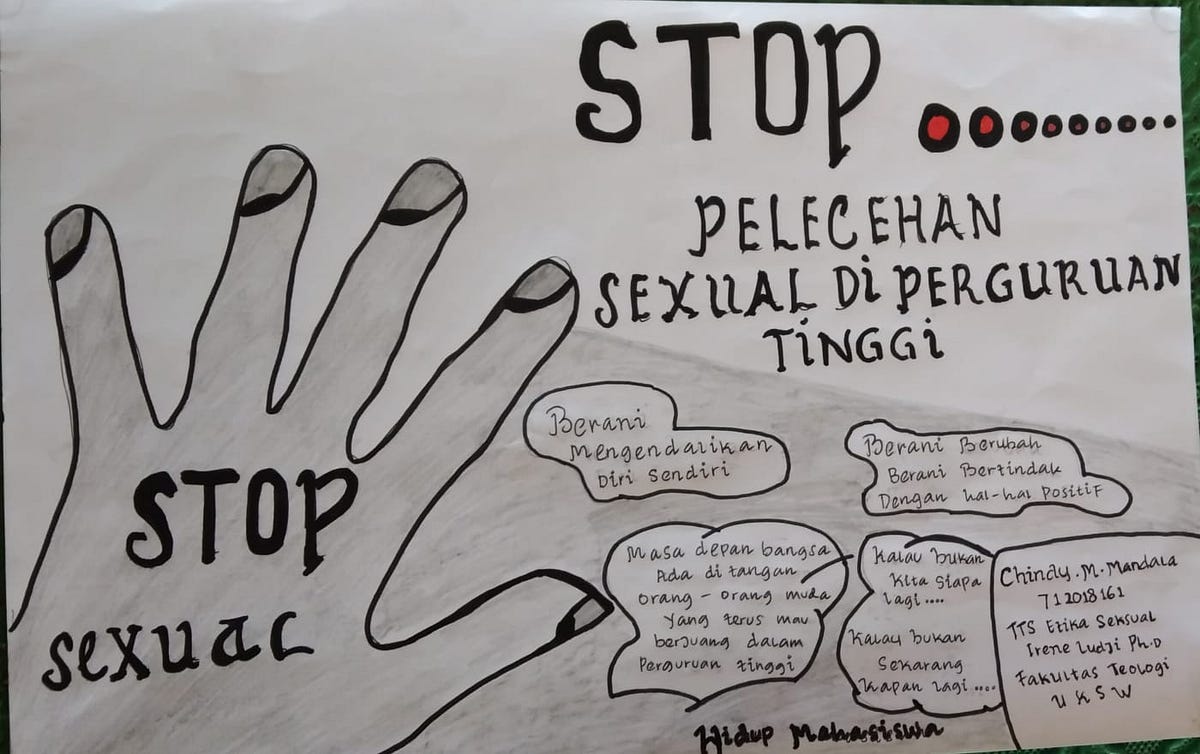 STOP
PELECEHAN
SEXUAL Di PERGURUAN
TiNGGi
STOP
sexual
Berani
Mengendalikan
Diri Sendiri
Berani Berubah
Berani Bertindak
Dengan hal-hal Positif
Masa depan bangsa
Ada di tangan
orang - orang muda
Yang terus mau
berjuang dalam
Perguruan tinggi
Kalau bukan
Kita Siapa
lagi ....
Kalau bukan
Sekarang
Kapan lagi ....
Chindy . M. Mandala
712018161
TTS Etika Seksual
Irene Ludji Ph.D
Fakultas Teologi
U K S W
Hidup Mahasiswa